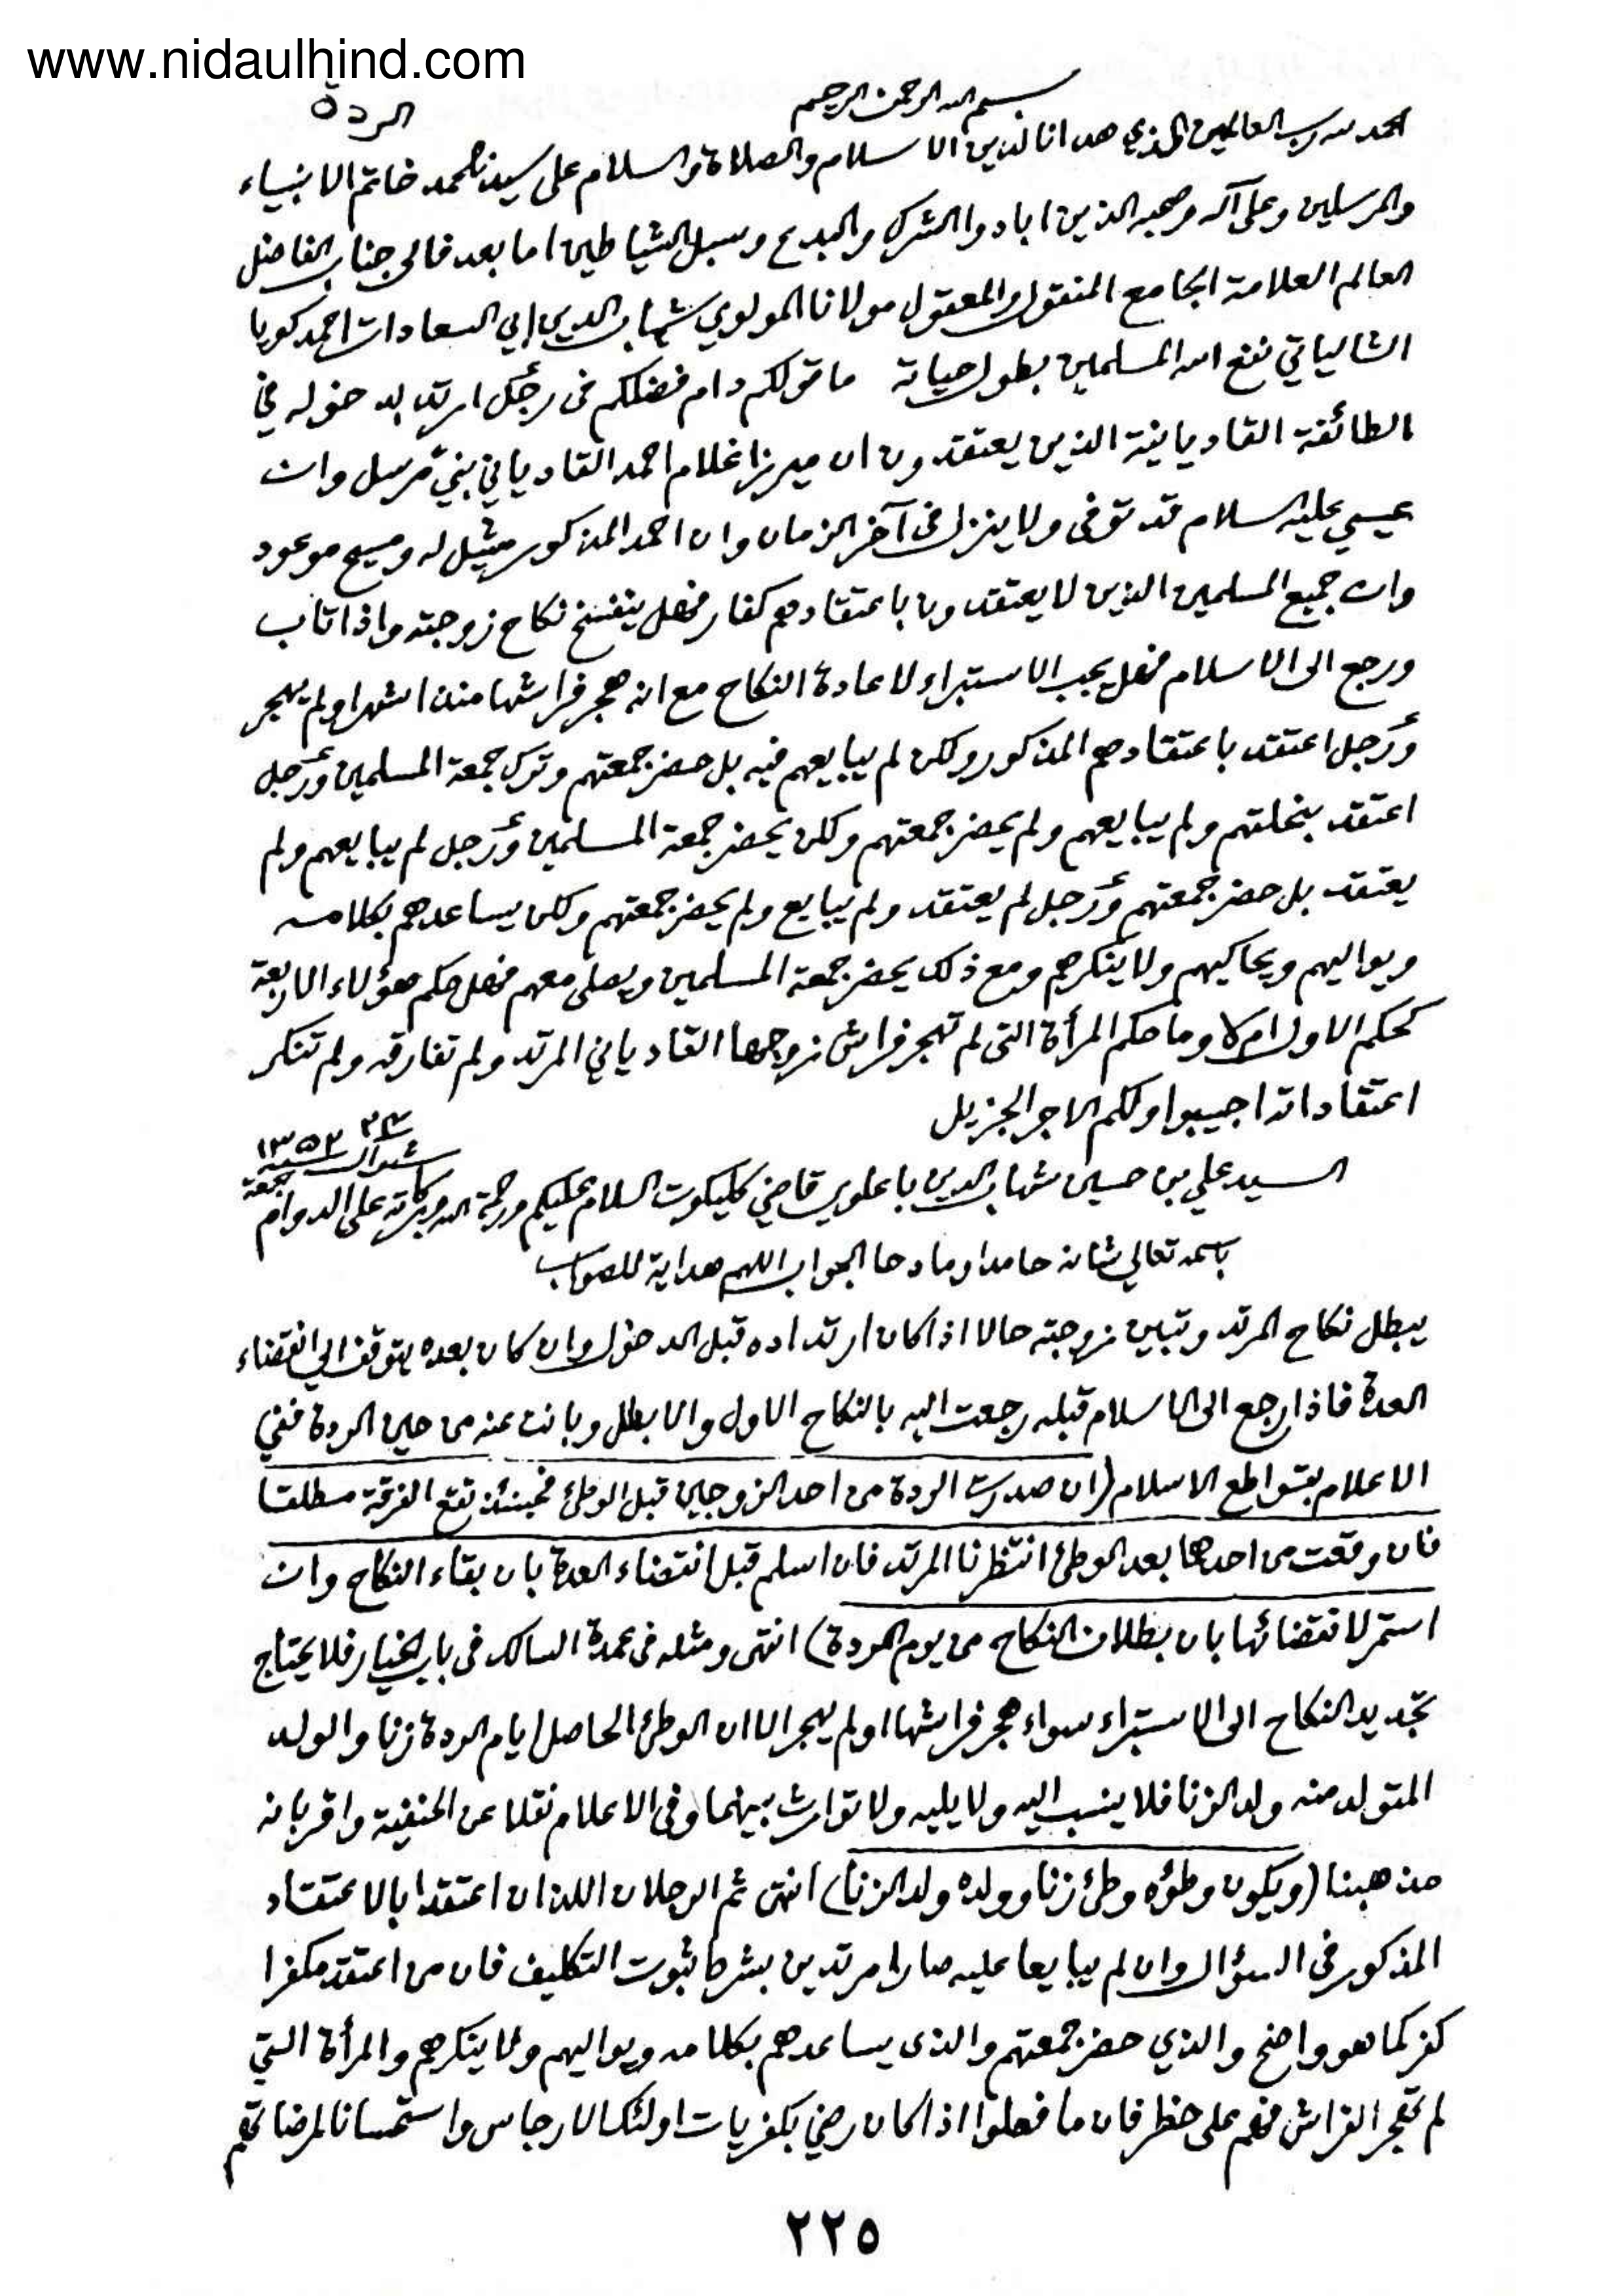 www.nidaulhind.com
الردة
بسم الله الرحمن الرحيم
الحمد لله رب العالمين الذي هدانا لدين الاسلام والصلاة والسلام على سيدنا محمد خاتم الانبياء
والمرسلين وعلى آله وصحبه الذين ابادوا الشرك والبدع وسبل الشياطين اما بعد فالى جناب الفاضل
العالم العلامة الجامع المنقول والمعقول مولانا المولوي شهاب الدين ابي السعادات احمد كويا
الشالياتي نفع الله المسلمين بطول حياته ما قولكم دام فضلكم فى رجل ارتد بدخوله في
الطائفة القاديانية الذين يعتقدون ان ميرزا غلام احمد القادياني نبي مرسل وان
عيسى عليه السلام قد توفى ولا ينزل فى آخر الزمان وان احمد المذكور مثيل له ومسيح موعود
وان جميع المسلمين الذين لا يعتقدون باعتقادهم كفار فهل ينفسخ نكاح زوجته واذا تاب
ورجع الى الاسلام فهل يجب الاستبراء لاعادة النكاح مع انه هجر فراشها منذ اشهر او لم يهجر
ورجل اعتقد باعتقادهم المذكور ولكن لم يبايعهم فيه بل حضر جمعتهم وترك جمعة المسلمين ورجل
اعتقد بنحلتهم ولم يبايعهم ولم يحضر جمعتهم ولكن يحضر جمعة المسلمين ورجل لم يبايعهم ولم
يعتقد بل حضر جمعتهم ورجل لم يعتقد ولم يبايع ولم يحضر جمعتهم ولكن يساعدهم بكلامه
ويواليهم ويحاكيهم ولا ينكرهم ومع ذلك يحضر جمعة المسلمين ويصلى معهم فهل حكم هؤلاء الاربعة
كحكم الاول ام لا وما حكم المرأة التى لم تهجر فراش زوجها القادياني المرتد ولم تفارقه ولم تنكر
اعتقاداته اجيبوا ولكم الاجر الجزيل
شوال سنة ١٣٥٢
جمعة
السيد علي بن حسين شهاب الدين باعلوي قاضي كليكوت السلام عليكم ورحمة الله وبركاته على الدوام
باسمه تعالى شانه حامدا ومادحا الجواب اللهم هداية للصواب
يبطل نكاح المرتد وتبين زوجته حالا اذا كان ارتداده قبل الدخول وان كان بعده يتوقف الى انقضاء
العدة فاذا رجع الى الاسلام قبله رجعت اليه بالنكاح الاول والا بطل وبانت عنه من حين الردة ففي
الاعلام بقواطع الاسلام (ان صدرت الردة من احد الزوجين قبل الوطئ فحينئذ تقع الفرقة مطلقا
فان وقعت من احدهما بعد الوطئ انتظرنا المرتد فان اسلم قبل انقضاء العدة بان بقاء النكاح وان
استمر لانقضائها بان بطلان النكاح من يوم الردة) انتهى ومثله فى عمدة السالك فى باب الخيار فلا يحتاج
تجديد النكاح الى الاستبراء سواء هجر فراشها او لم يهجر الا ان الوطئ الحاصل ايام الردة زنا والولد
المتولد منه ولد الزنا فلا ينسب اليه ولا يليه ولا توارث بينهما وفى الاعلام نقلا عن الحنفية واقر بانه
مذهبنا (ويكون وطؤه وطئ زنا وولده ولد الزنا) انتهى ثم الرجلان اللذان اعتقدا بالاعتقاد
المذكور في السؤال وان لم يبايعا عليه صارا مرتدين بشرط ثبوت التكليف فان من اعتقد مكفرا
كفر كما هو واضح والذي حضر جمعتهم والذى يساعدهم بكلامه ويواليهم ولا ينكرهم والمرأة التي
لم تهجر الفراش فهم على خطر فان ما فعلوا اذا كان رضي بكفريات اولئك الارجاس واستحسانا
٢٢٥